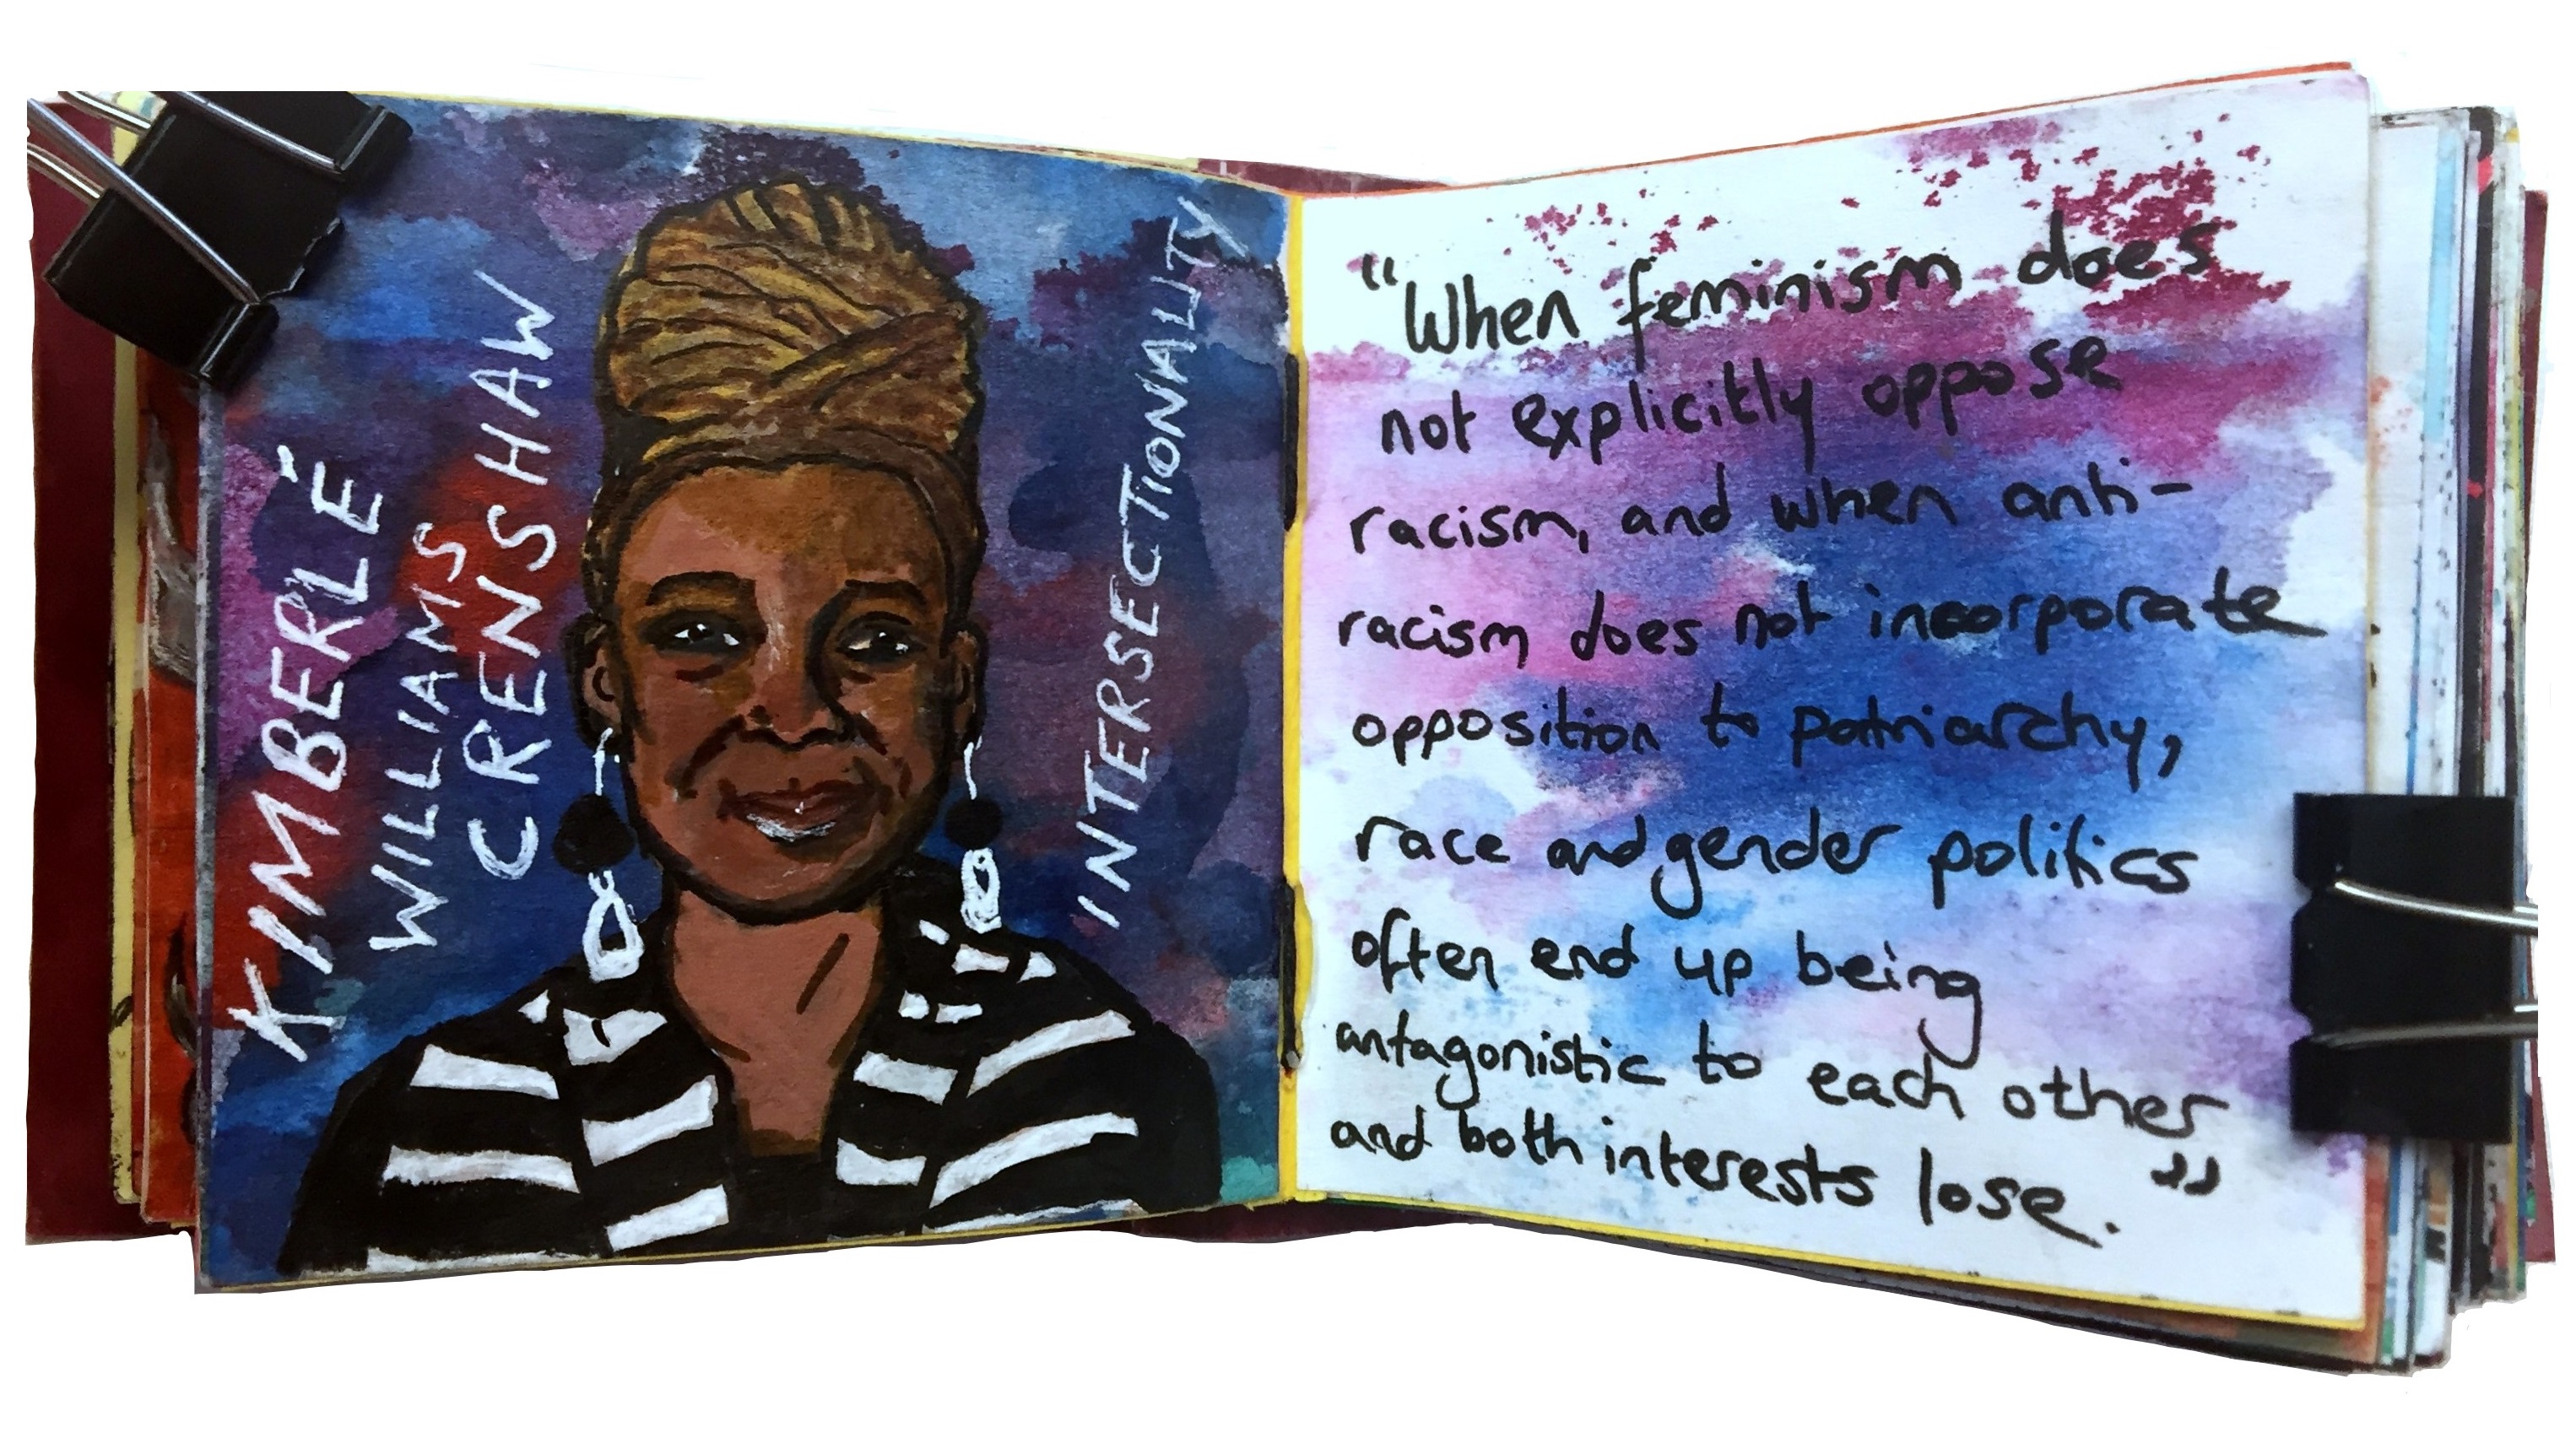 KIMBERLÉ
WILLIAMS
CRENSHAW
INTERSECTIONALITY
"When feminism does
not explicitly oppose
racism, and when anti-
racism does not incorporate
opposition to patriarchy,
race and gender politics
often end up being
antagonistic to each other
and both interests lose."